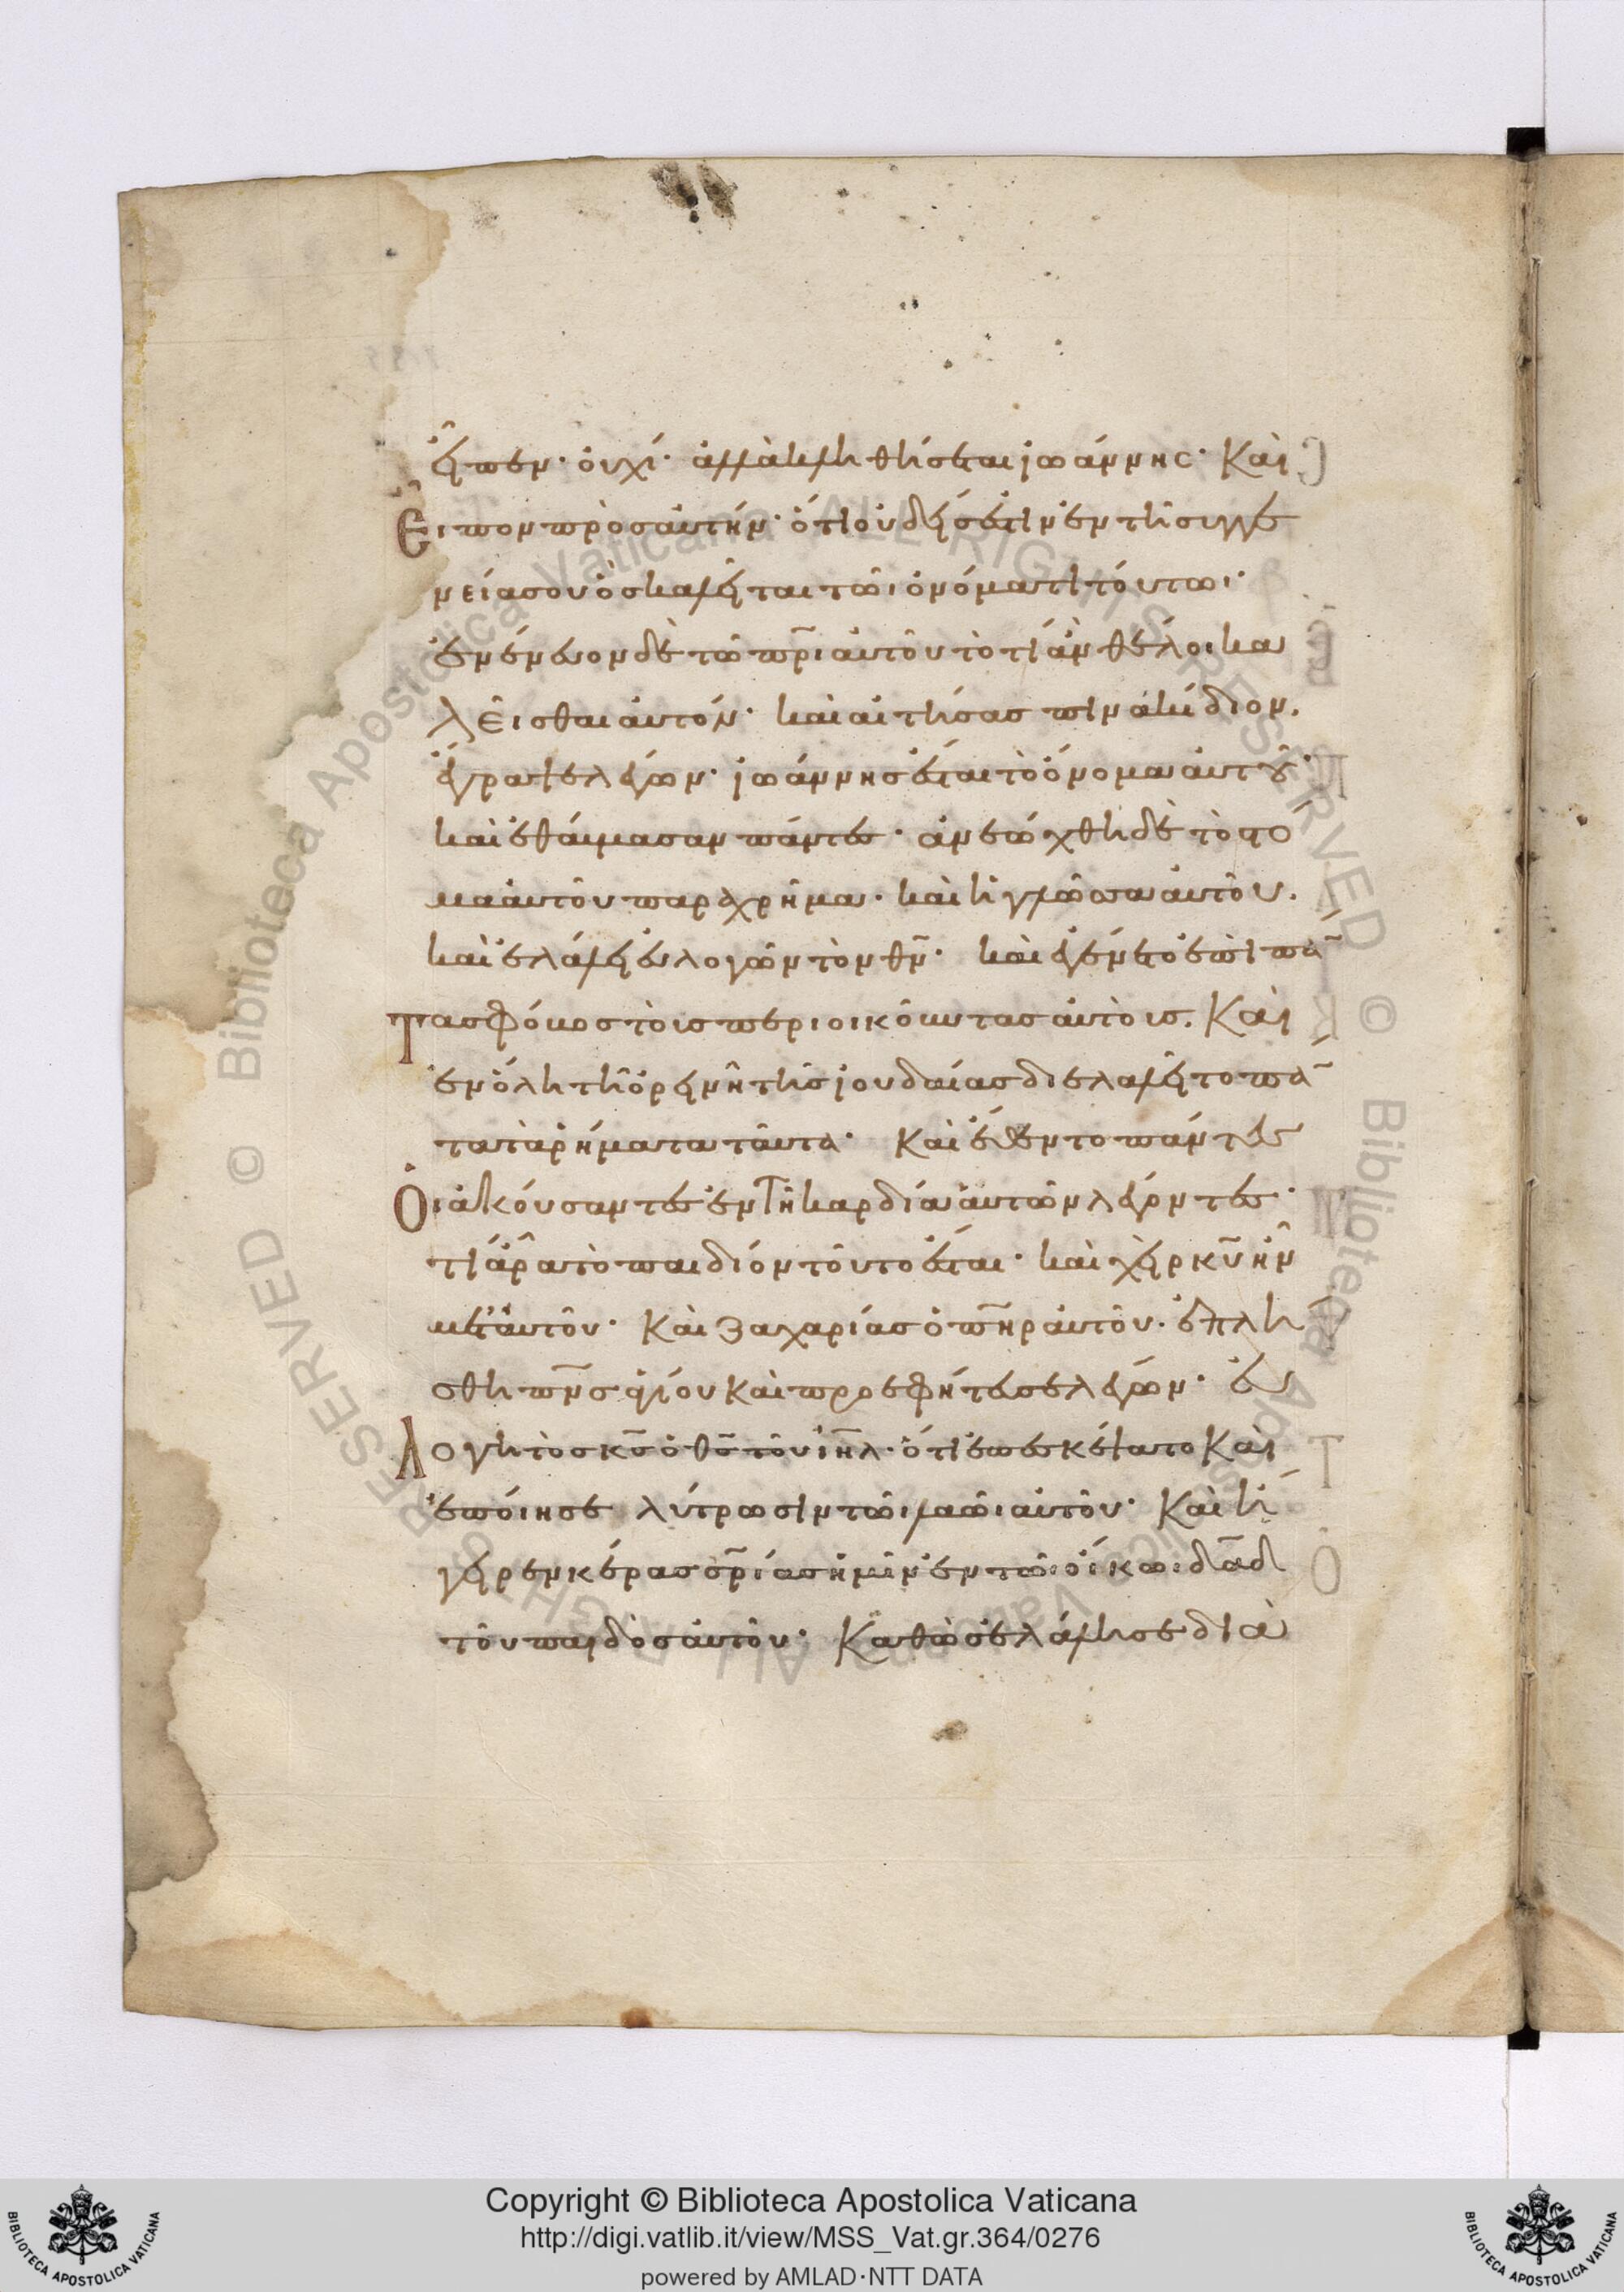 εἶπεν· οὐχί· ἀλλὰ κληθήσεται ἰωάννης· Καὶ
Εἶπον πρὸς αὐτήν· ὅτι οὐδείς ἐστιν ἐν τῆ συγγε
νείας σου ὃς καλεῖται τῶι ὀνόματι τούτωι·
ἐνένευον δὲ τῶ πρ̅ι αὐτοῦ τὸ τί ἂν θέλοι κα
λεῖσθαι αὐτόν· καὶ αἰτήσας πινακίδιον.
ἔγραψε λέγων· ἰωάννης ἔσται τὸ ὄνομα αὐτοῦ·
καὶ ἐθαύμασαν πάντες· ἀνεώχθη δὲ τὸ στό
μα αὐτοῦ παραχρῆμα· καὶ ἡ γλῶσσα αὐτοῦ.
καὶ ἐλάλει εὐλογῶν τὸν θν̅· καὶ ἐγένετο ἐπὶ πά
Τας φόβος τοὺς περιοικοῦντας αὐτούς. Καὶ
ἐν ὅλη τῆ ὀρεινῆ τῆς ἰουδαίας διελαλεῖτο πά
τα τὰ ρήματα ταῦτα· Καὶ ἔθεντο πάντες
Οἱ ἀκούσαντες ἐν τῆ καρδία αὐτῶν λέγοντες·
τί ἄρα τὸ παιδίον τοῦτο ἔσται· καὶ χεὶρ κυ̅ ἦν
μετ' αὐτοῦ· Καὶ Ζαχαρίας ὁ πη̅ρ αὐτοῦ· ἐπλή
σθη πν̅ς ἁγίου Καὶ προεφήτευσε λέγων· εὐ
Λογητὸς κς̅ ὁ θς̅ τοῦ ἰη̅λ· ὅτι ἐπεσκέψατο Καὶ
ἐποίησε λύτρωσιν τῶι λαῶι αὐτοῦ· Καὶ ἤ
γειρεν κέρας σρ̅ίας ἡμῖν ἐν τῶι οἴκωι δα̅δ
τοῦ παιδὸς αὐτοῦ· Καθὼς ἐλάλησε διὰ
Copyright © Biblioteca Apostolica Vaticana
http://digi.vatlib.it/view/MSS_Vat.gr.364/0276
powered by AMLAD·NTT DATA